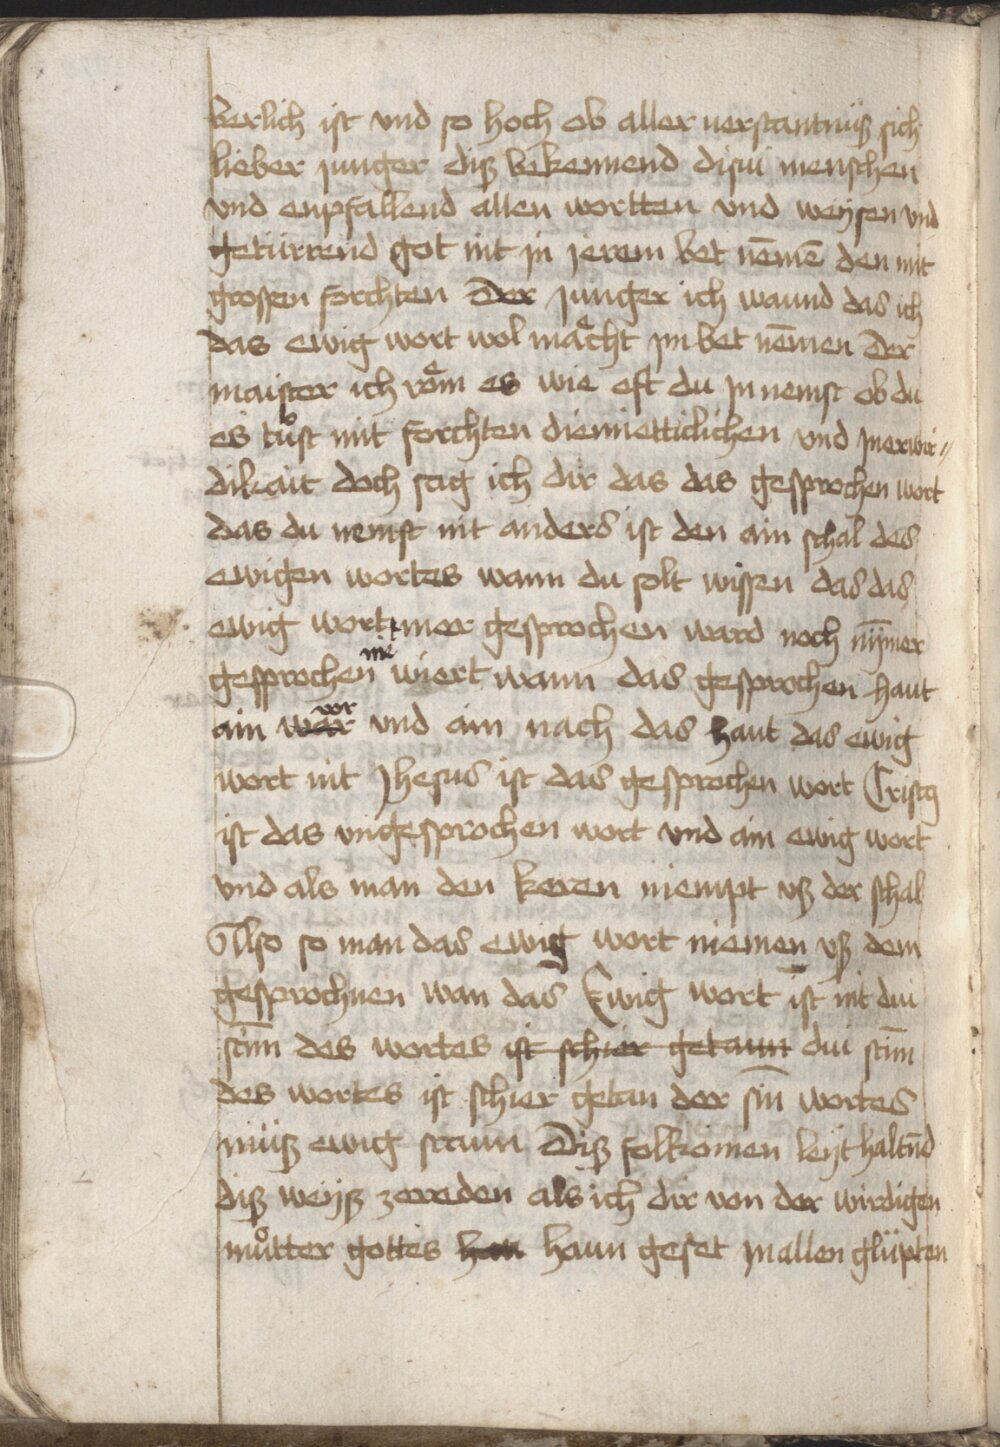 berlich ist vnd so hoch ob aller verstantnüß sich
lieber junger diß bekennend disui menschen
vnd enpfallend allen wortten vnd weysen vnd
getürrend got nit jn jerem bet nēmē den mit
grossen forchten Der junger ich waund das ich
das ewig wort wol mäcȟt jm bet nēmen Der
maister ich röm es wie oft du jn nemst ob du
es tůst mit forchten diemietticlichen vnd jn erwir〃
dikait doch sag ich dir das das gesprochen wort
das du nemst nit anders ist den ain schal des
ewigen wortes wann du solt wissen das das
ewig wort nie mer gesprochen ward noch nÿmer
gesprochen wiert wann das gesprochen haut
ain vor vnd ain nach das haut das ewig
wort nit Jhesus ist das gesprochen wort Cristg
ist das vngesprochen wort vnd ain ewig wort
vnd als man den keren niempt vß der schal
Also so man das ewig wort niemen vß dem
gesprochnen wan das Ewig wort ist nit dui
stīm des wortes ist schier getaun dui stīm
des wortes ist schier getan der sin wortes
müß ewig staun Diß folkomen leÿt haltnd
diß weyß zereden als ich dir von der wirdigen
můtter gottes haun geset jn allen glüpten